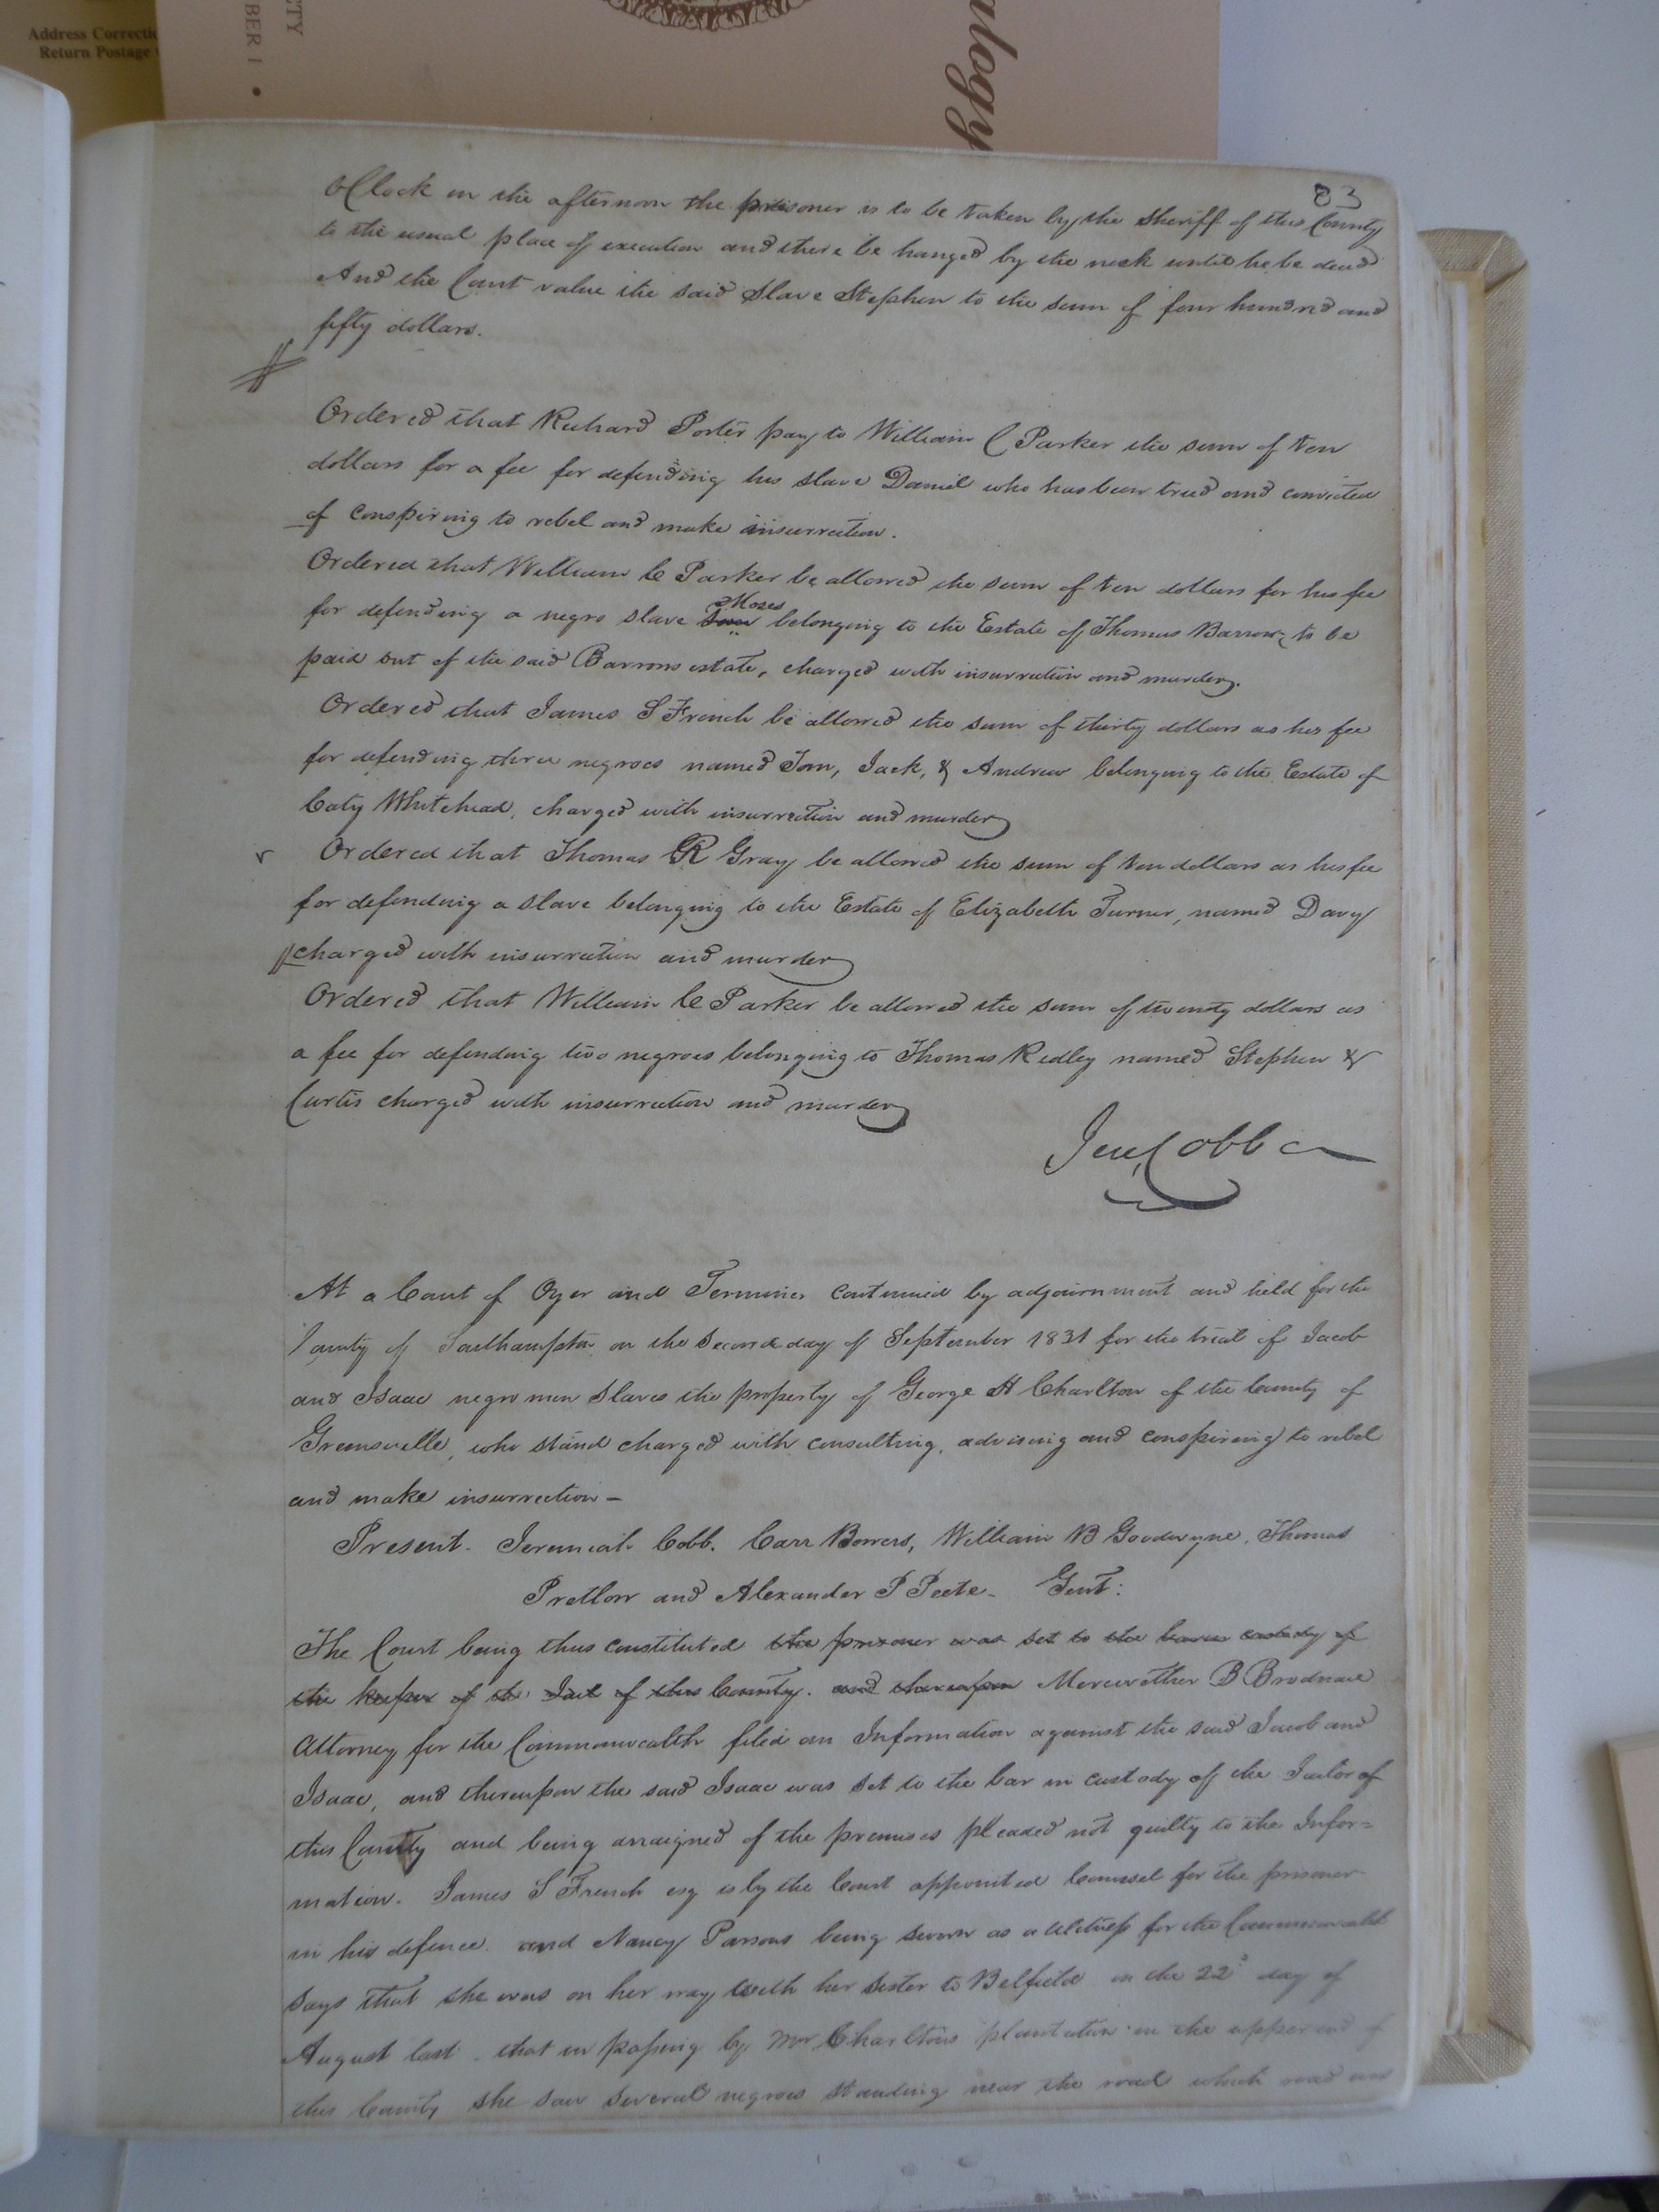 Address Correctio
Return Postage
CTY
BER 1 •
ulogy
83
oClock in the afternoon the prisoner is to be taken by the Sheriff of this County
to the usual place of execution and there be hanged by the neck until he be dead
And the Court value the said Slave Stephen to the sum of four hundred and
fifty dollars.
Ordered that Richard Porter pay to William C Parker the sum of ten
dollars for a fee for defending his slave Daniel who has been tried and convicted
of conspiring to rebel and make insurrection.
Ordered that William C Parker be allowed the sum of ten dollars for his fee
for defending a negro slave Sam Moses belonging to the Estate of Thomas Barrow, to be
paid out of the said Barrows estate, charged with insurrection and murder.
Ordered that James S French be allowed the sum of thirty dollars as his fee
for defending three negroes named Tom, Jack, & Andrew belonging to the Estate of
Caty Whitehead, charged with insurrection and murder
Ordered that Thomas R Gray be allowed the sum of ten dollars as his fee
for defending a slave belonging to the Estate of Elizabeth Turner, named Davy
charged with insurrection and murder
Ordered that William C Parker be allowed the sum of twenty dollars as
a fee for defending two negroes belonging to Thomas Ridley named Stephen &
Curtis charged with insurrection and murder
Jer. Cobb
At a Court of Oyer and Terminer continued by adjournment and held for the
County of Southampton on the Second day of September 1831 for the trial of Jacob
and Isaac negro men Slaves the property of George H Charlton of the County of
Greensville, who stand charged with consulting, advising and conspiring to rebel
and make insurrection –
Present. Jeremiah Cobb. Carr Bowers, William B Goodwyne, Thomas
Pretlow and Alexander P Peete – Gent:
The Court being thus constituted the prisoner was set to the bar in custody of
the keeper of the Jail of this County. and thereupon Merewether B Brodnax
Attorney for the Commonwealth filed an Information against the said Jacob and
Isaac, and thereupon the said Isaac was set to the bar in custody of the Jailor of
this County and being arraigned of the premises pleaded not guilty to the Infor=
mation. James S French esq is by the Court appointed Counsel for the prisoner
in his defence. and Nancy Parsons being sworn as a witness for the Commonwealth
says that she was on her way with her sister to Belfield on the 22d day of
August last. that in passing by Mr Charltons plantation in the upper end of
this County she saw several negroes standing near the road which road was